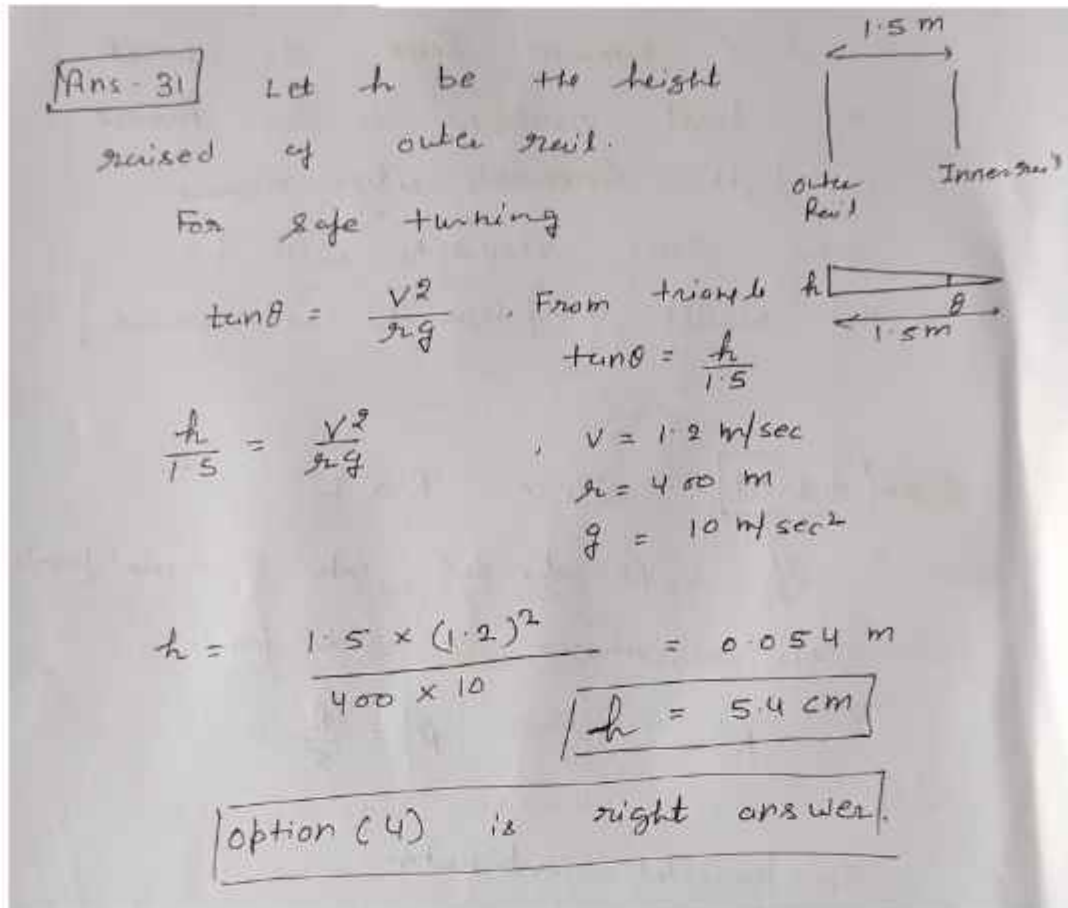 1.5 m
Ans - 31 Let h be the height
raised of outer rail.
outer Rail
Inner rail
For safe turning
tanθ = v²/rg, From triangle
h θ
1.5m
tanθ = h/1.5
h/1.5 = v²/rg , v = 1.2 m/sec
r = 400 m
g = 10 m/sec²
h = 1.5 × (1.2)² / 400 × 10 = 0.054 m
h = 5.4 cm
option (4) is right answer.